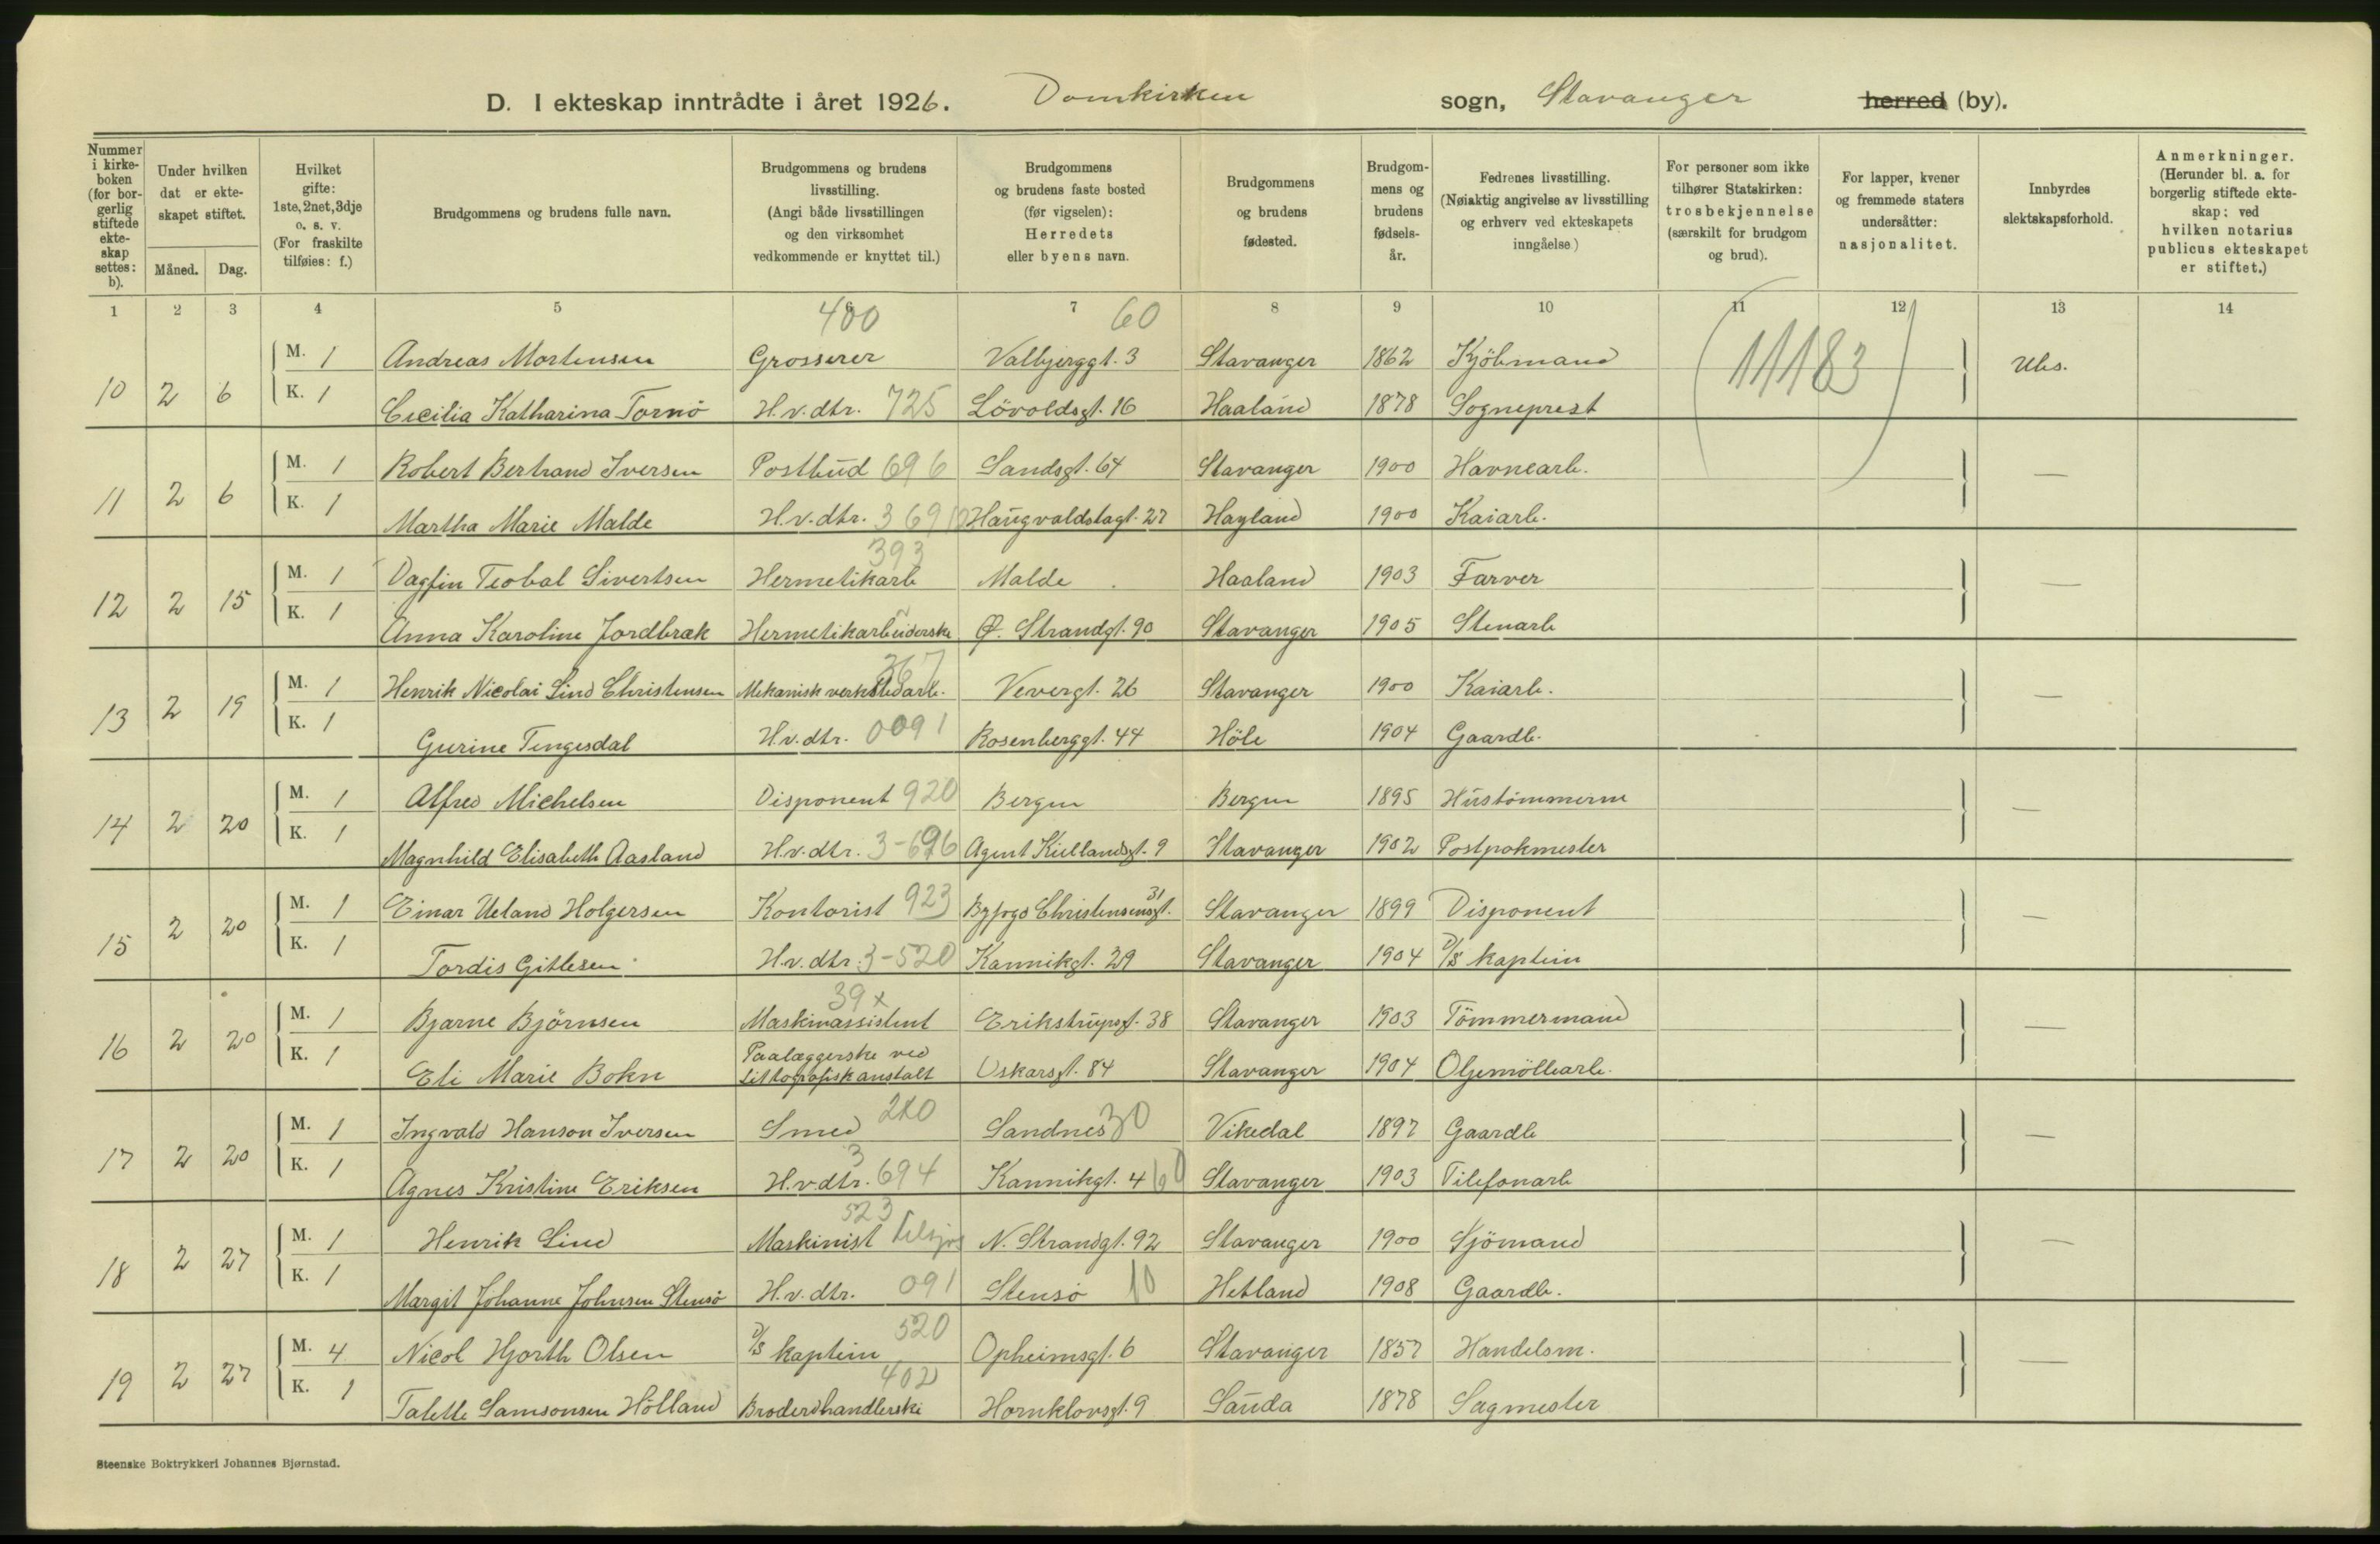 D. I ekteskap inntrådte i året 1926. Domkirken sogn, Stavanger herred (by).
Nummer i kirke- boken (for bor- gerlig stiftede ekte- skap settes: b).
Under hvilken dat er ekte- skapet stiftet.
Måned. Dag.
Hvilket gifte: 1ste, 2net, 3dje o. s. v. (For fraskilte tilføies: f.)
Brudgommens og brudens fulle navn.
Brudgommens og brudens livsstilling. (Angi både livsstillingen og den virksomhet vedkommende er knyttet til.)
Brudgommens og brudens faste bosted (før vigselen): Herredets eller byens navn.
Brudgommens og brudens fødested.
Brudgom- mens og brudens fødsels- år.
Fedrenes livsstilling. (Nøiaktig angivelse av livsstilling og erhverv ved ekteskapets inngåelse)
For personer som ikke tilhører Statskirken: trosbekjennelse (særskilt for brudgom og brud).
For lapper, kvener og fremmede staters undersåtter: nasjonalitet.
Innbyrdes slektskapsforhold.
Anmerkninger. (Herunder bl. a. for borgerlig stiftede ekte- skap: ved hvilken notarius publicus ekteskapet er stiftet.)
1 2 3 4 5 6 7 8 9 10 11 12 13 14
400 60
M. 1 Andreas Mortensen Grosserer Valbjerggt. 3 Stavanger 1862 Kjöbmand (11183) Ubs.
10 2 6 K. 1 Cecilia Katharina Tornö H.v.dtr. 725 Lövoldsgt. 16 Haaland 1878 Sogneprest
M. 1 Robert Bertrand Iversen Postbud 696 Sandsgt. 64 Stavanger 1900 Havnearb. —
11 2 6 K. 1 Martha Marie Malde H.v.dtr. 3 691 Haugvaldstagt. 27 Høyland 1900 Kaiarb.
393
M. 1 Dagfin Teobal Sivertsen Hermetikarb Malde Haaland 1903 Farver —
12 2 15 K. 1 Anna Karoline Jordbræk Hermetikarbeiderske Ø. Strandgt. 90 Stavanger 1905 Stenarb
367
M. 1 Henrik Nicolai Lind Christensen Mekanisk verkstedarb. Vevergt. 26 Stavanger 1900 Kaiarb. —
13 2 19 K. 1 Gurine Tengesdal H.v.dtr. 0091 Rosenberggt. 44 Höle 1904 Gaardb.
M. 1 Alfred Michelsen Disponent 920 Bergen Bergen 1895 Hustömmerme —
14 2 20 K. 1 Magnhild Elisabeth Aasland H.v.dtr. 3-696 Agent Kiellandsgt. 9 Stavanger 1902 Postpakmester
M. 1 Einar Ueland Holgersen Kontorist 923 Byfogd Christensensgt. 31 Stavanger 1899 Disponent —
15 2 20 K. 1 Tordis Gitlesen H.v.dtr. 3-520 Kannikgt. 29 Stavanger 1904 D/S kaptein
39x
M. 1 Bjarne Björnsen Maskinassistent Erikstrupsgt. 38 Stavanger 1903 Tömmermand —
16 2 20 K. 1 Eli Marie Bokn Paalæggerske ved Littografisk anstalt Oskarsgt. 84 Stavanger 1904 Oljemöllearb.
M. 1 Ingvald Hanson Iversen Smed 210 Sandnes 30 Vikedal 1897 Gaardb —
17 2 20 K. 1 Agnes Kristine Eriksen H.v.dtr. 3 694 Kannikgt. 4 60 Stavanger 1903 Telefonarb
523
M. 1 Henrik Lind Maskinist N. Strandgt. 92 Stavanger 1900 Sjömand —
18 2 27 K. 1 Margit Johanne Johnsen Stensö H.v.dtr. 091 Stensö 10 Hetland 1908 Gaardb.
M. 4 Nicol Hjorth Olsen D/S kaptein 520 Opheimsgt. 6 Stavanger 1857 Handelsm. —
402
19 2 27 K. 1 Talette Samsonsen Hölland Broderihandlerske Hornklovsgt. 9 Sauda 1878 Sagmester
Steenske Boktrykkeri Johannes Bjørnstad.